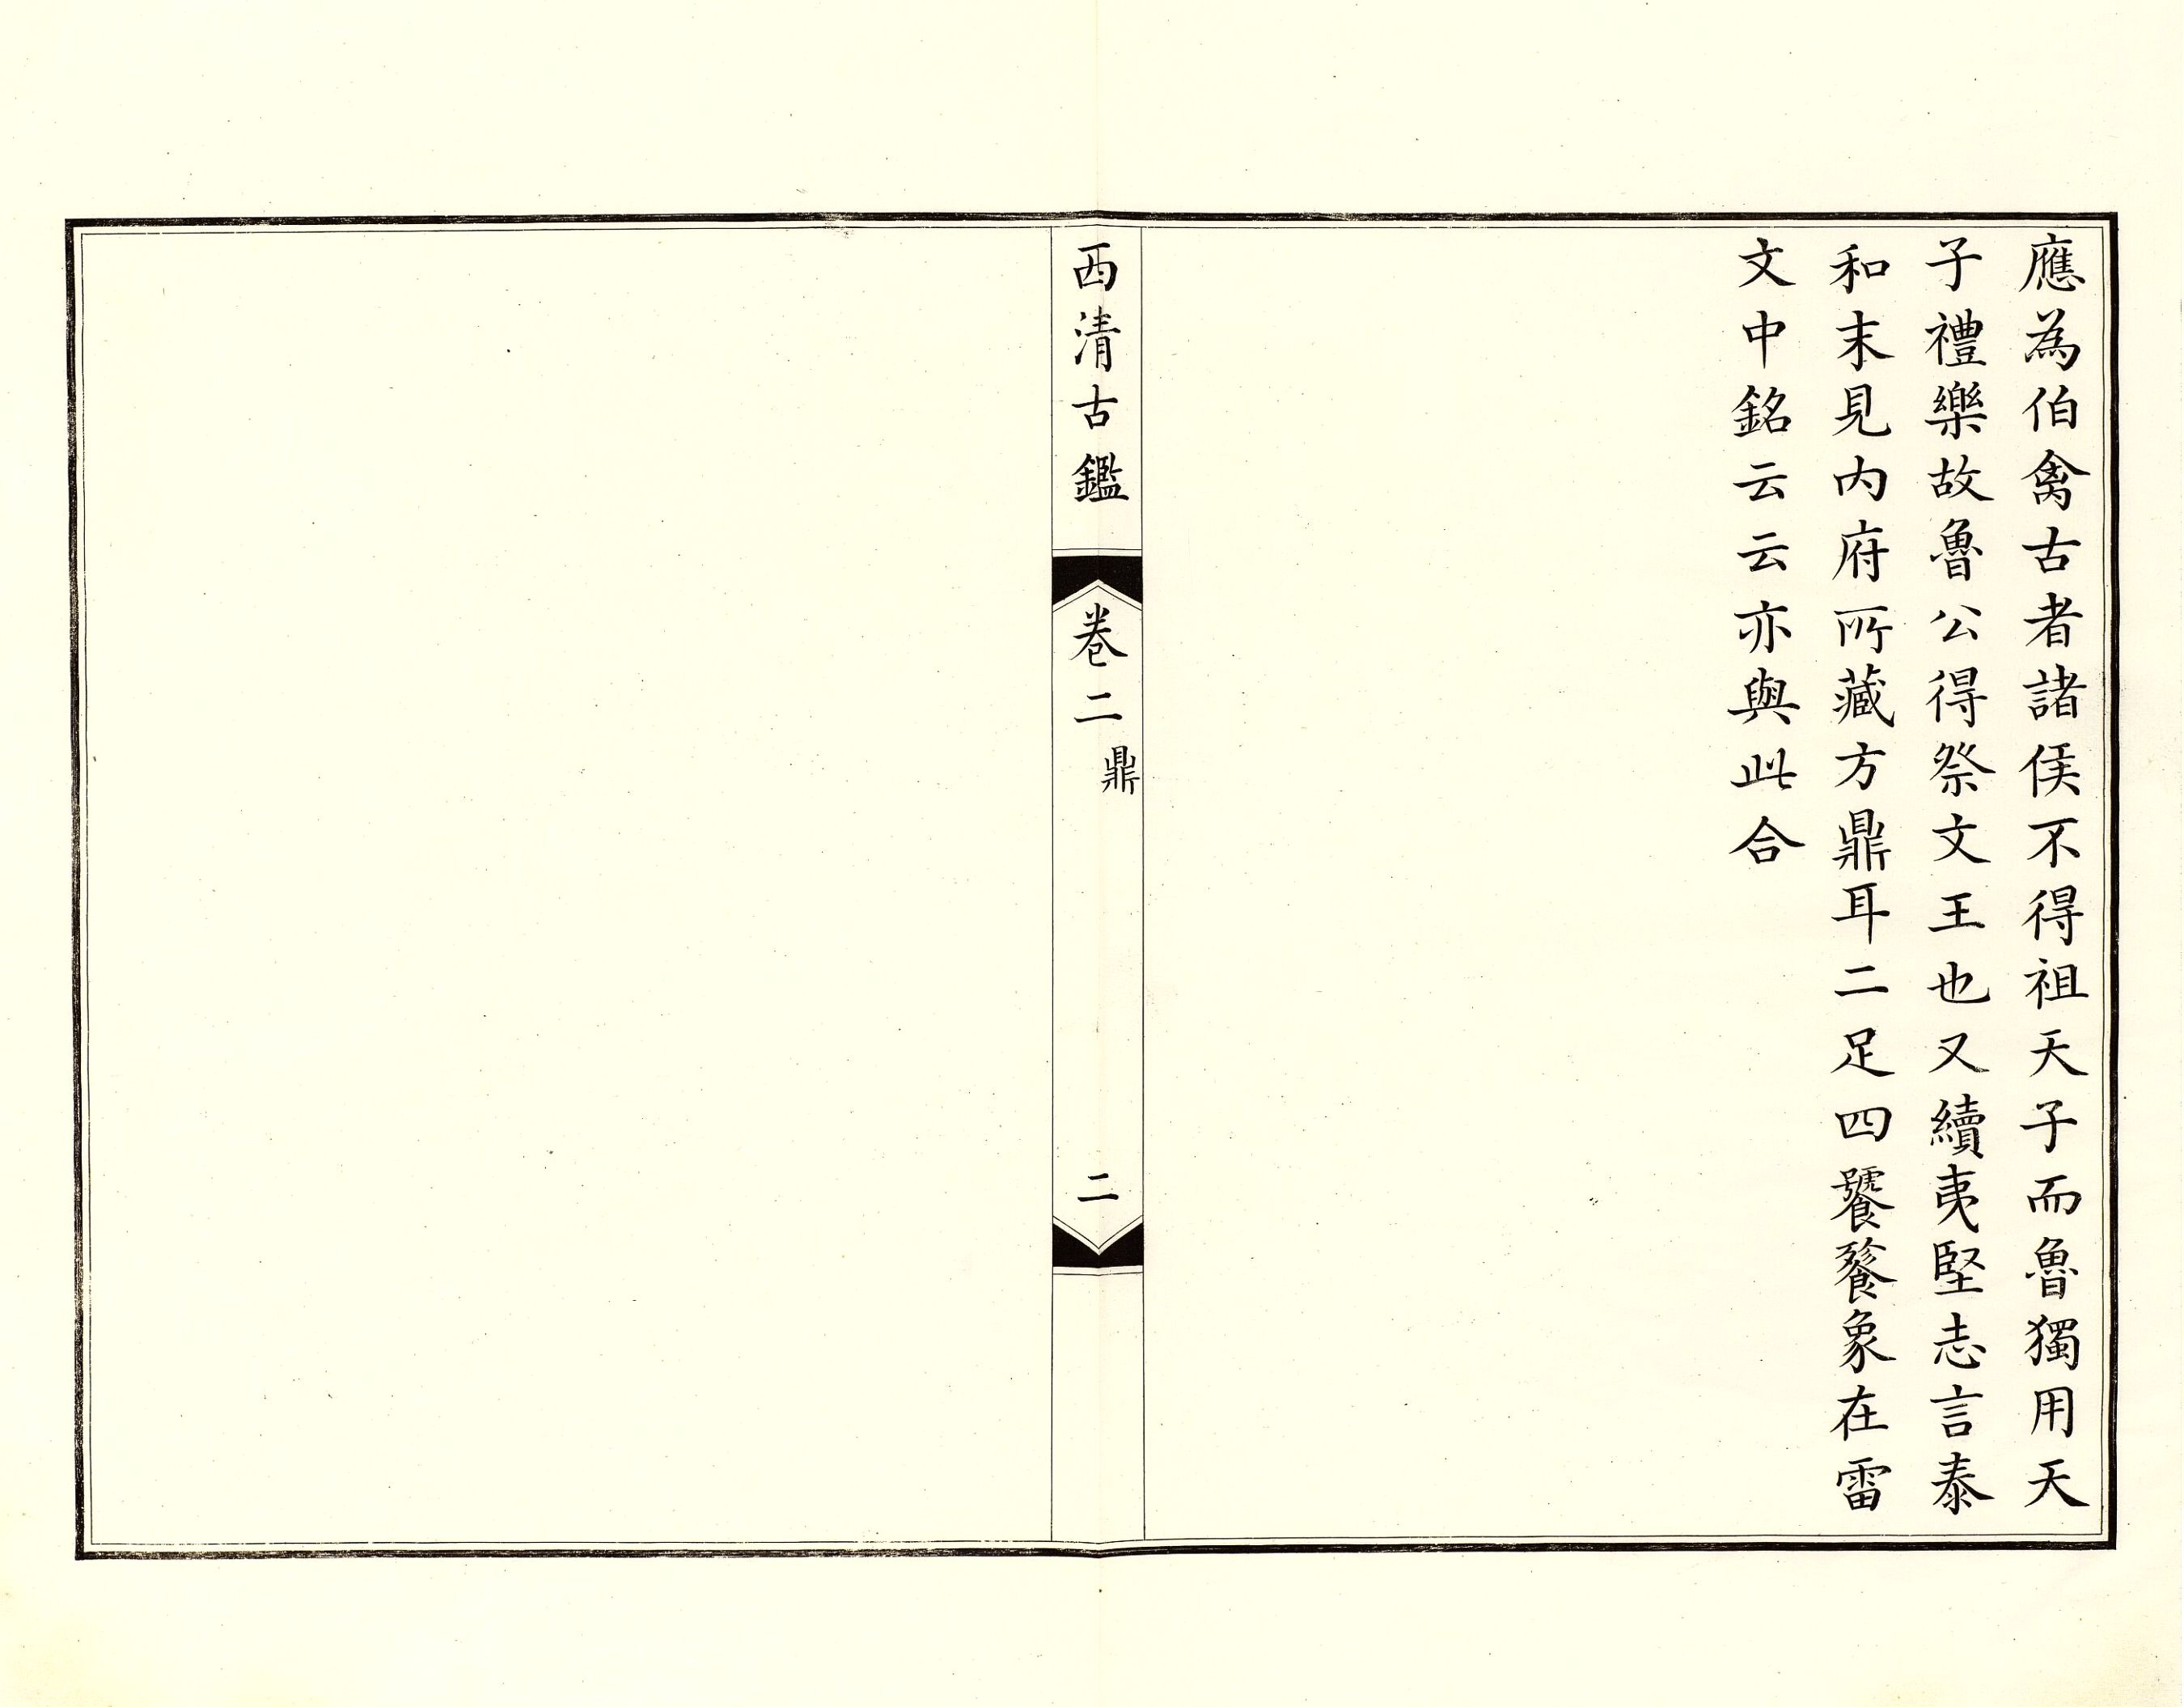 應為伯禽古者諸侯不得祖天子而魯獨用天
子禮樂故魯公得祭文王也又續夷堅志言泰
和末見内府所藏方鼎耳二足四饕餮象在雷
文中銘云云亦與此合
西清古鑑
卷二
鼎
二